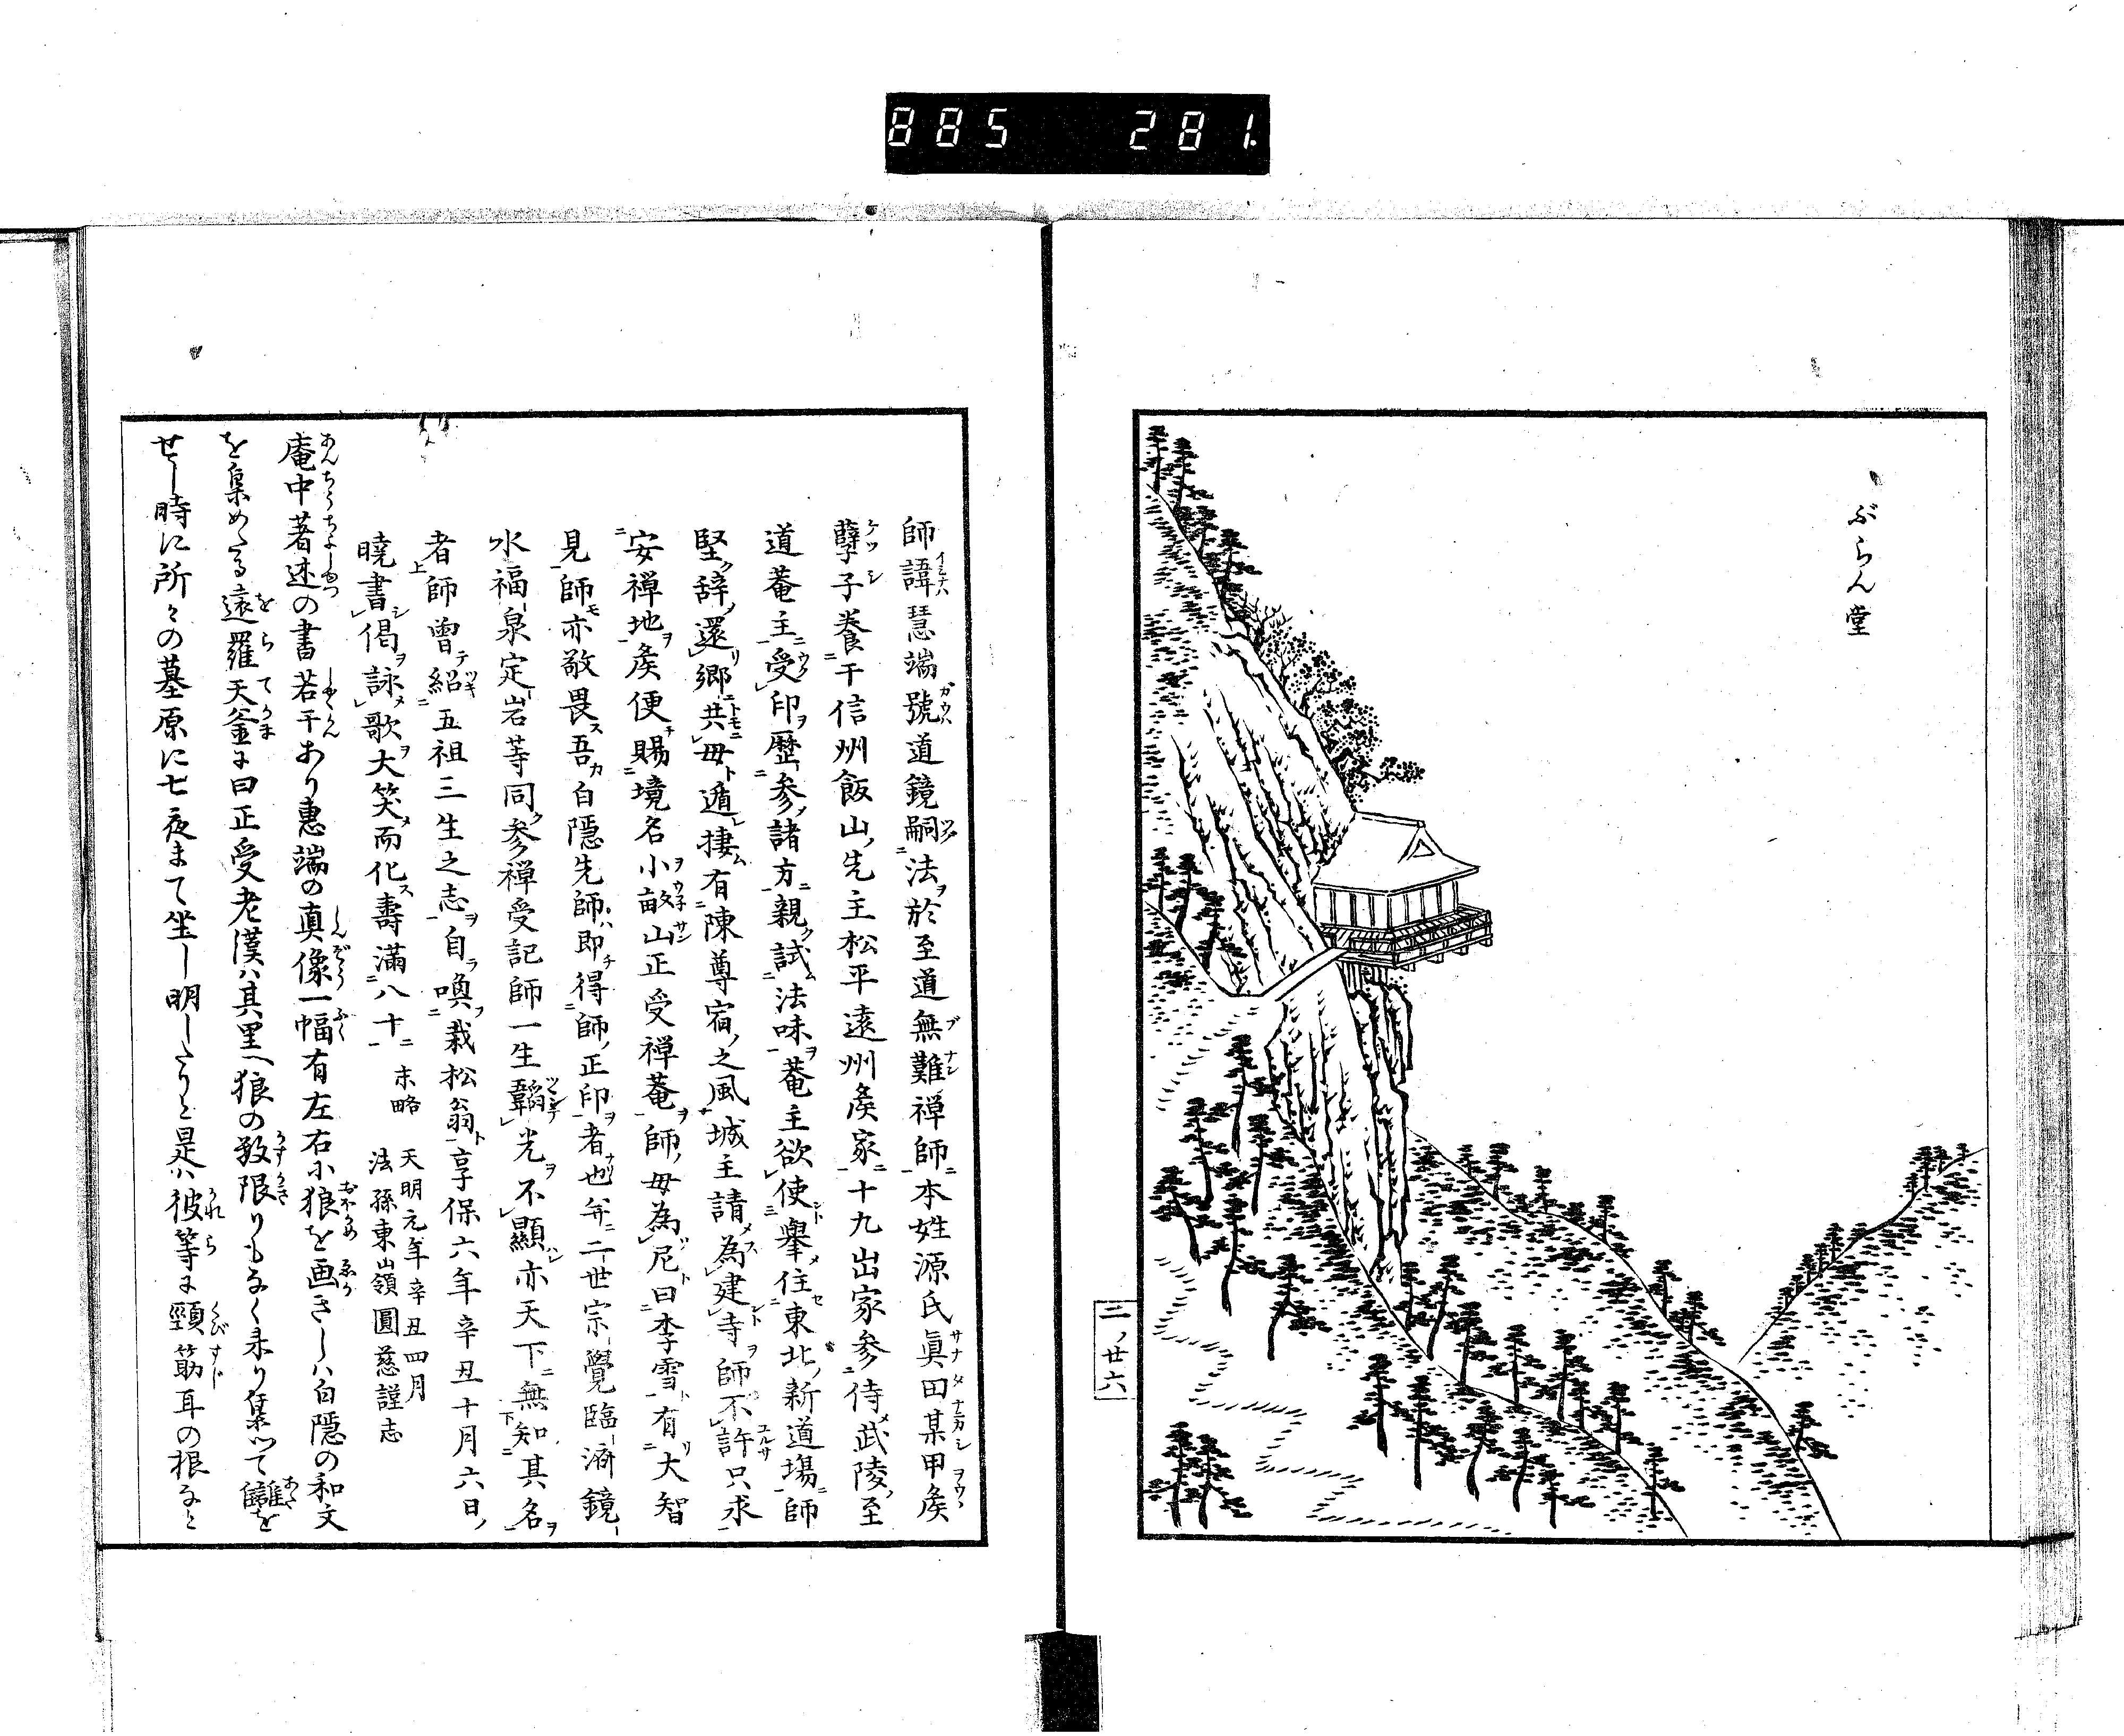 885 281
ぶらん堂
二ノ廿六
師諱慧端號道鏡嗣法於至道無難禅師本姓源氏眞田某甲矦
孽子養干信州飯山先主松平遠州矦家十九出家参侍武陵至
道菴主受印歴参諸方親試法味菴主欲使擧住東北新道塲師
堅辞還郷共毋遁捿有陳尊宿之風城主請為建寺師不許只求
安禅地矦便賜境名小畝山正受禅菴師毋為尼曰李雪有大智
見師亦敬畏吾白隠先師即得師正印者也并二世宗覺臨済鏡
水福泉定岩等同参禅受記師一生韜光不顯亦天下無知其名
者師曽紹五祖三生之志自喚栽松翁享保六年辛丑十月六日
曉書偈詠歌大笑而化壽滿八十 末略 天明元年辛丑四月
法孫東山嶺圓慈謹志
庵中著述の書若干あり惠端の真像一幅有左右小狼を画きしハ白隠の和文
を集めたる遠羅天釜に曰正受老漢ハ其里へ狼の数限りもなく来り集つて讎を
せし時に所々の墓原に七夜まて坐し明したりと是ハ彼等に頸筋耳の根なと